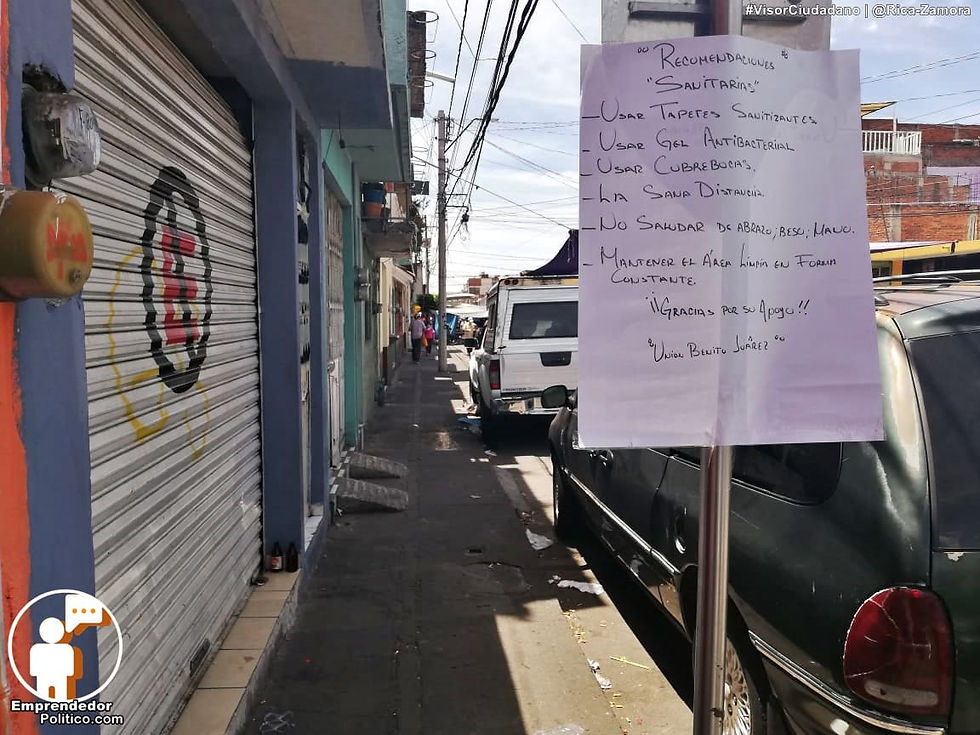 #VisorCiudadano | @Rica-Zamora
"Recomendaciones"
"Sanitarias"
- Usar Tapetes Sanitizantes
- Usar Gel Antibacterial
- Usar Cubrebocas.
- La Sana Distancia.
- No Saludar de abrazo, beso, mano.
- Mantener el Área Limpia en Forma
Constante.
¡¡Gracias por su Apoyo!!
"Unión Benito Juárez"
Emprendedor
Politico.com